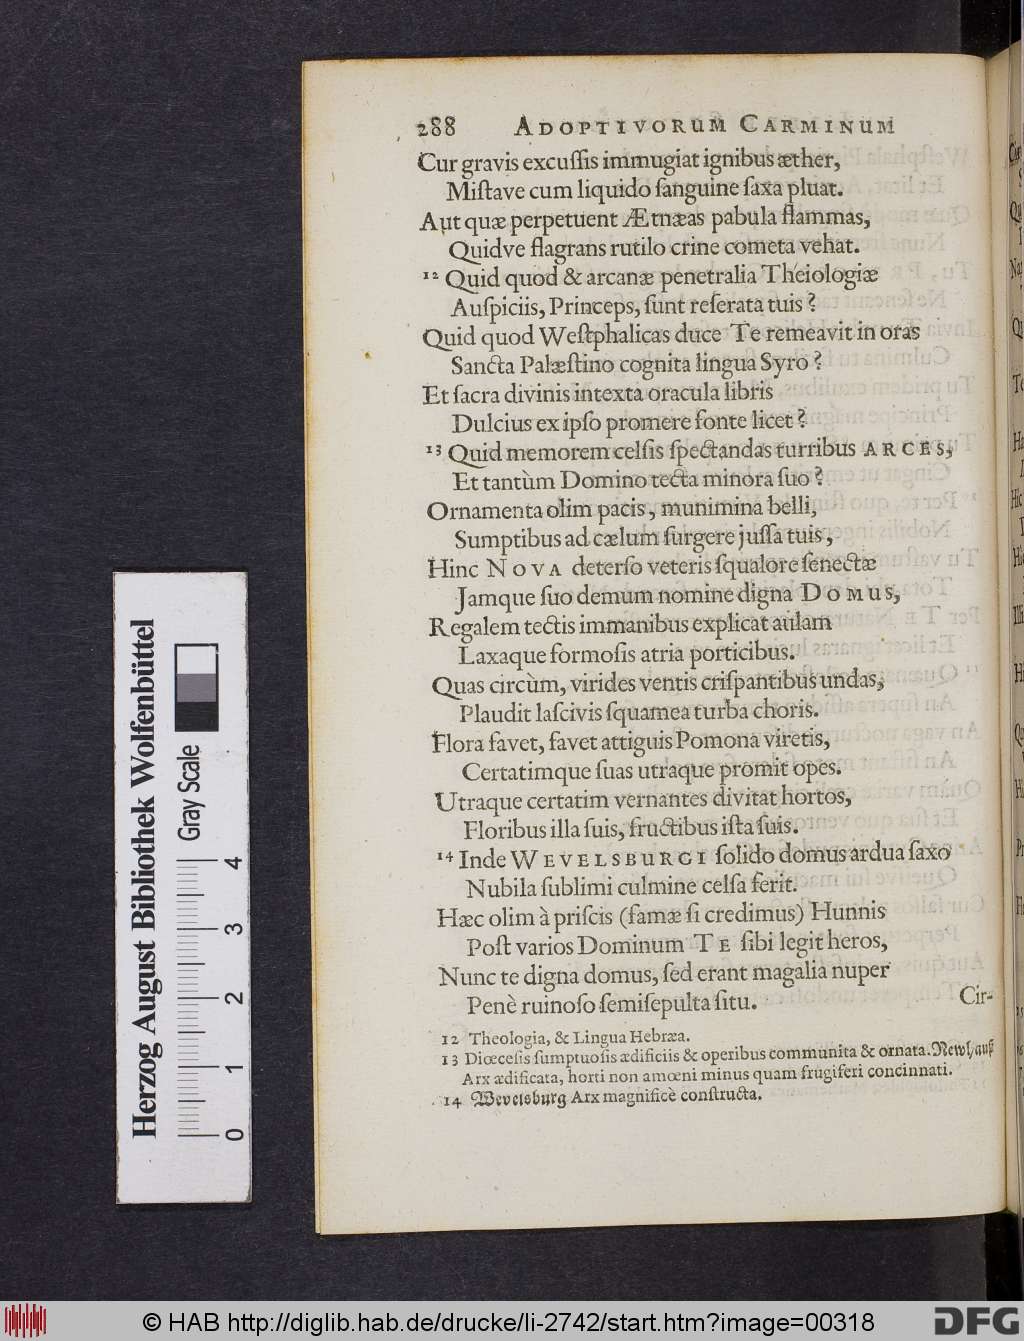 288 ADOPTIVORUM CARMINUM
Cur gravis excuſſis immugiat ignibus æther,
Miſtave cum liquido ſanguine ſaxa pluat.
Aut quæ perpetuent Ætnæas pabula flammas,
Quidve flagrans rutilo crine cometa vehat.
12 Quid quod & arcanæ penetralia Theiologiæ
Auſpiciis, Princeps, ſunt reſerata tuis?
Quid quod Weſtphalicas duce Te remeavit in oras
Sancta Palæſtino cognita lingua Syro?
Et ſacra divinis intexta oracula libris
Dulcius ex ipſo promere fonte licet?
13 Quid memorem celſis ſpectandas turribus ARCES,
Et tantùm Domino tecta minora ſuo?
Ornamenta olim pacis, munimina belli,
Sumptibus ad cælum ſurgere juſſa tuis,
Hinc NOVA deterſo veteris ſqualore ſenectæ
Jamque ſuo demum nomine digna DOMUS,
Regalem tectis immanibus explicat aulam
Laxaque formoſis atria porticibus.
Quas circùm, virides ventis criſpantibus undas,
Plaudit laſcivis ſquamea turba choris.
Flora favet, favet attiguis Pomona viretis,
Certatimque ſuas utraque promit opes.
Utraque certatim vernantes divitat hortos,
Floribus illa ſuis, fructibus iſta ſuis.
14 Inde WEVELSBURGI ſolido domus ardua ſaxo
Nubila ſublimi culmine celſa ferit.
Hæc olim à priſcis (famæ ſi credimus) Hunnis
Poſt varios Dominum TE ſibi legit heros,
Nunc te digna domus, ſed erant magalia nuper
Penè ruinoſo ſemiſepulta ſitu.
Cir-
12 Theologia, & Lingua Hebræa.
13 Diœceſis ſumptuoſis ædificiis & operibus communita & ornata. Newhauſ
Arx ædificata, horti non amœni minus quam frugiferi concinnati.
14 Wevelsburg Arx magnificè conſtructa.
Herzog August Bibliothek Wolfenbüttel
Gray Scale
0 1 2 3 4
© HAB http://diglib.hab.de/drucke/li-2742/start.htm?image=00318
DFG